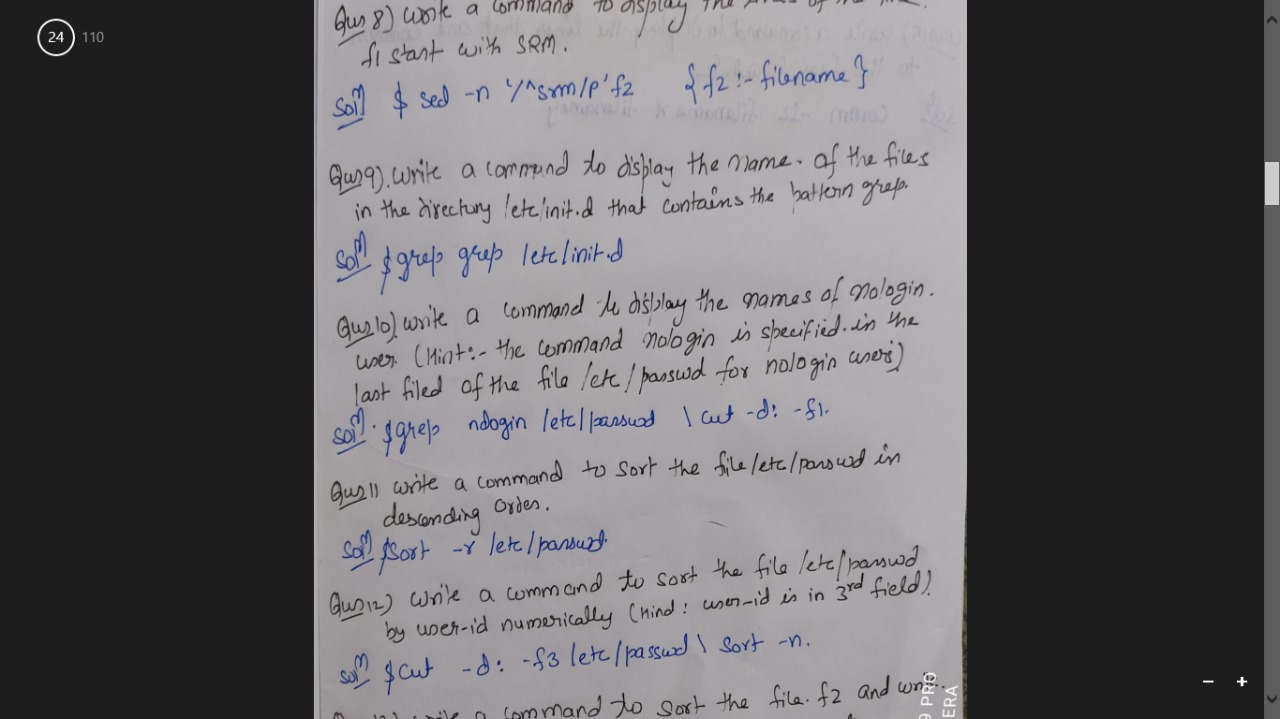 24 110
Qus 8) Write a command to display the lines of the file.
f1 start with SRM.
Solⁿ $ sed -n '/^srm/p' f2 {f2 :- filename}
Qus 9). Write a command to display the name. of the files
in the directory /etc/init.d that contains the pattern grep.
Solⁿ $grep grep /etc/init.d
Qus 10). write a command to display the names of nologin.
user. (Hint:- the command nologin is specified. in the
last filed of the file /etc/passwd for nologin users)
Solⁿ. $grep nologin /etc/passwd \ cut -d: -f1.
Qus 11 write a command to sort the file /etc/passwd in
descending order.
Solⁿ $sort -r /etc/passwd.
Qus 12) Write a command to sort the file /etc/passwd
by user-id numerically (Hind: user-id is in 3rd field).
Solⁿ $cut -d: -f3 /etc/passwd \ sort -n.
command to sort the file. f2 and
9 PRO
ERA